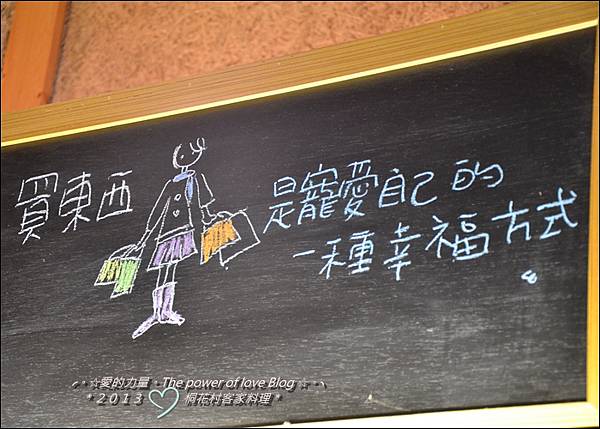 買東西
是寵愛自己的
一種幸福方式
☆愛的力量‧The power of love Blog☆
*2013 桐花村客家料理*